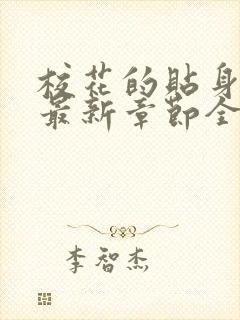 校花的贴身
最新章节全
李智杰